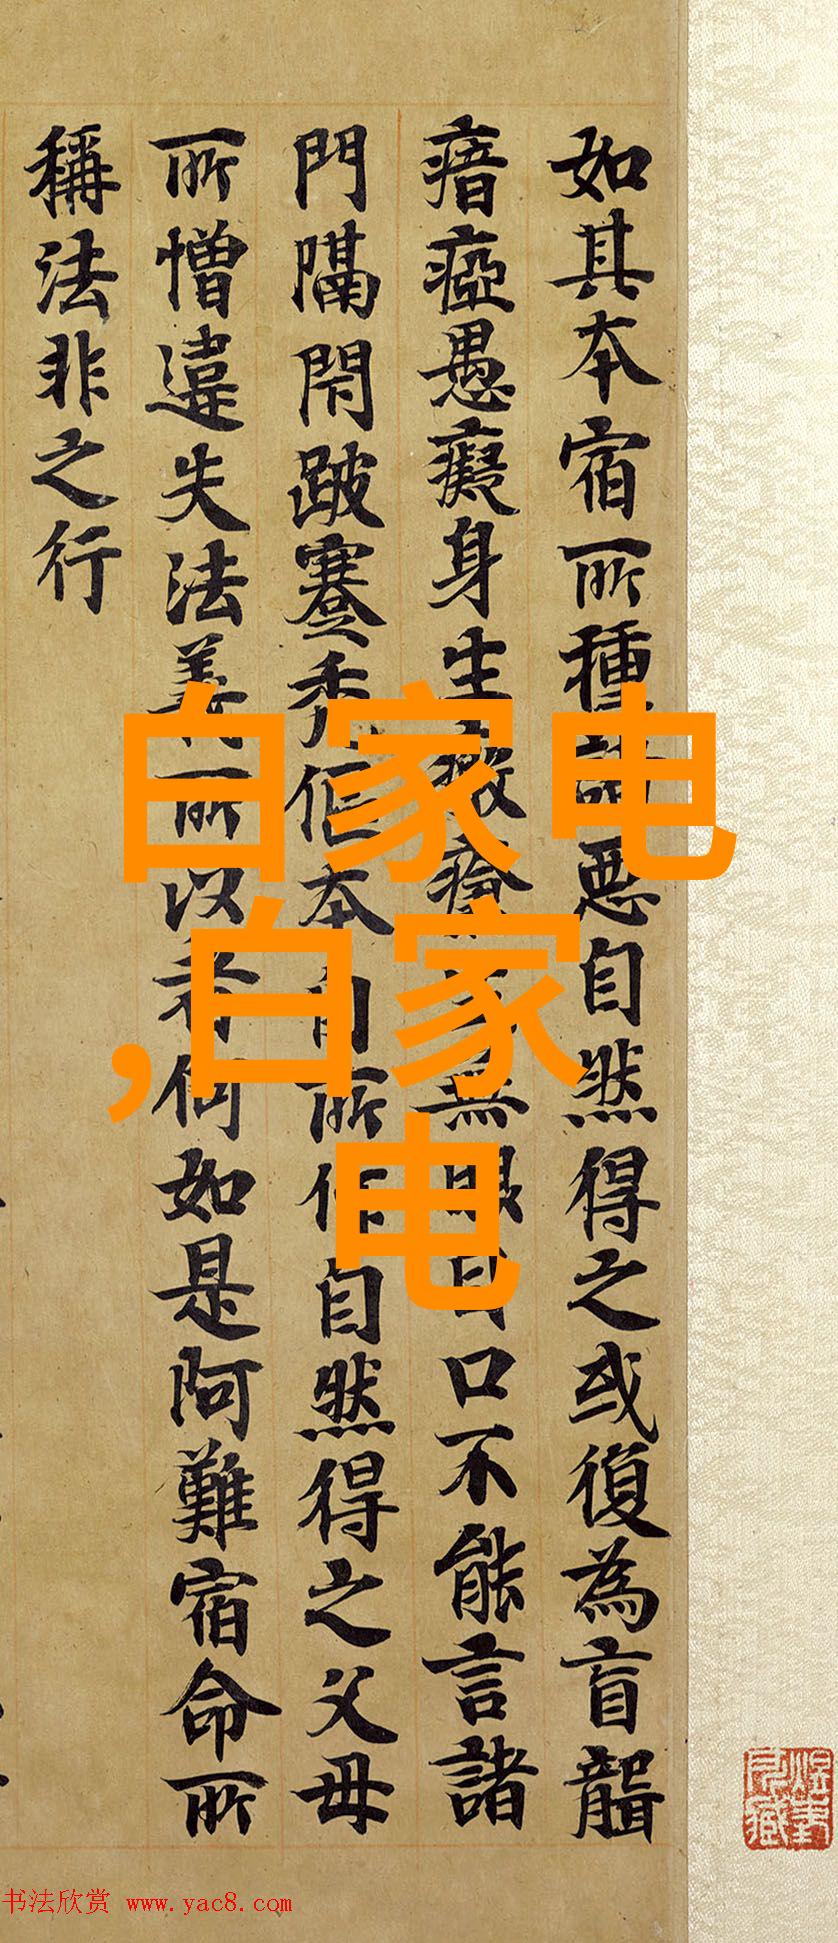 如其本宿所種諸惡自然得之或復為盲聾
瘖瘂愚癡身生癥瘡無眼耳口不能言諸
門隔閇跛蹇秃伛本自所作自然得之父母
所憎違失法義所以者何如是阿難宿命所
稱法非之行
白家电
,白家
电
书法欣赏 www.yac8.com